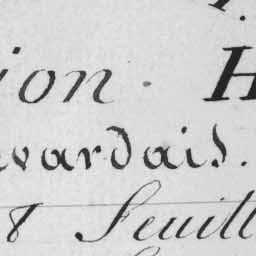 ion. H
wardais.
8 feuill